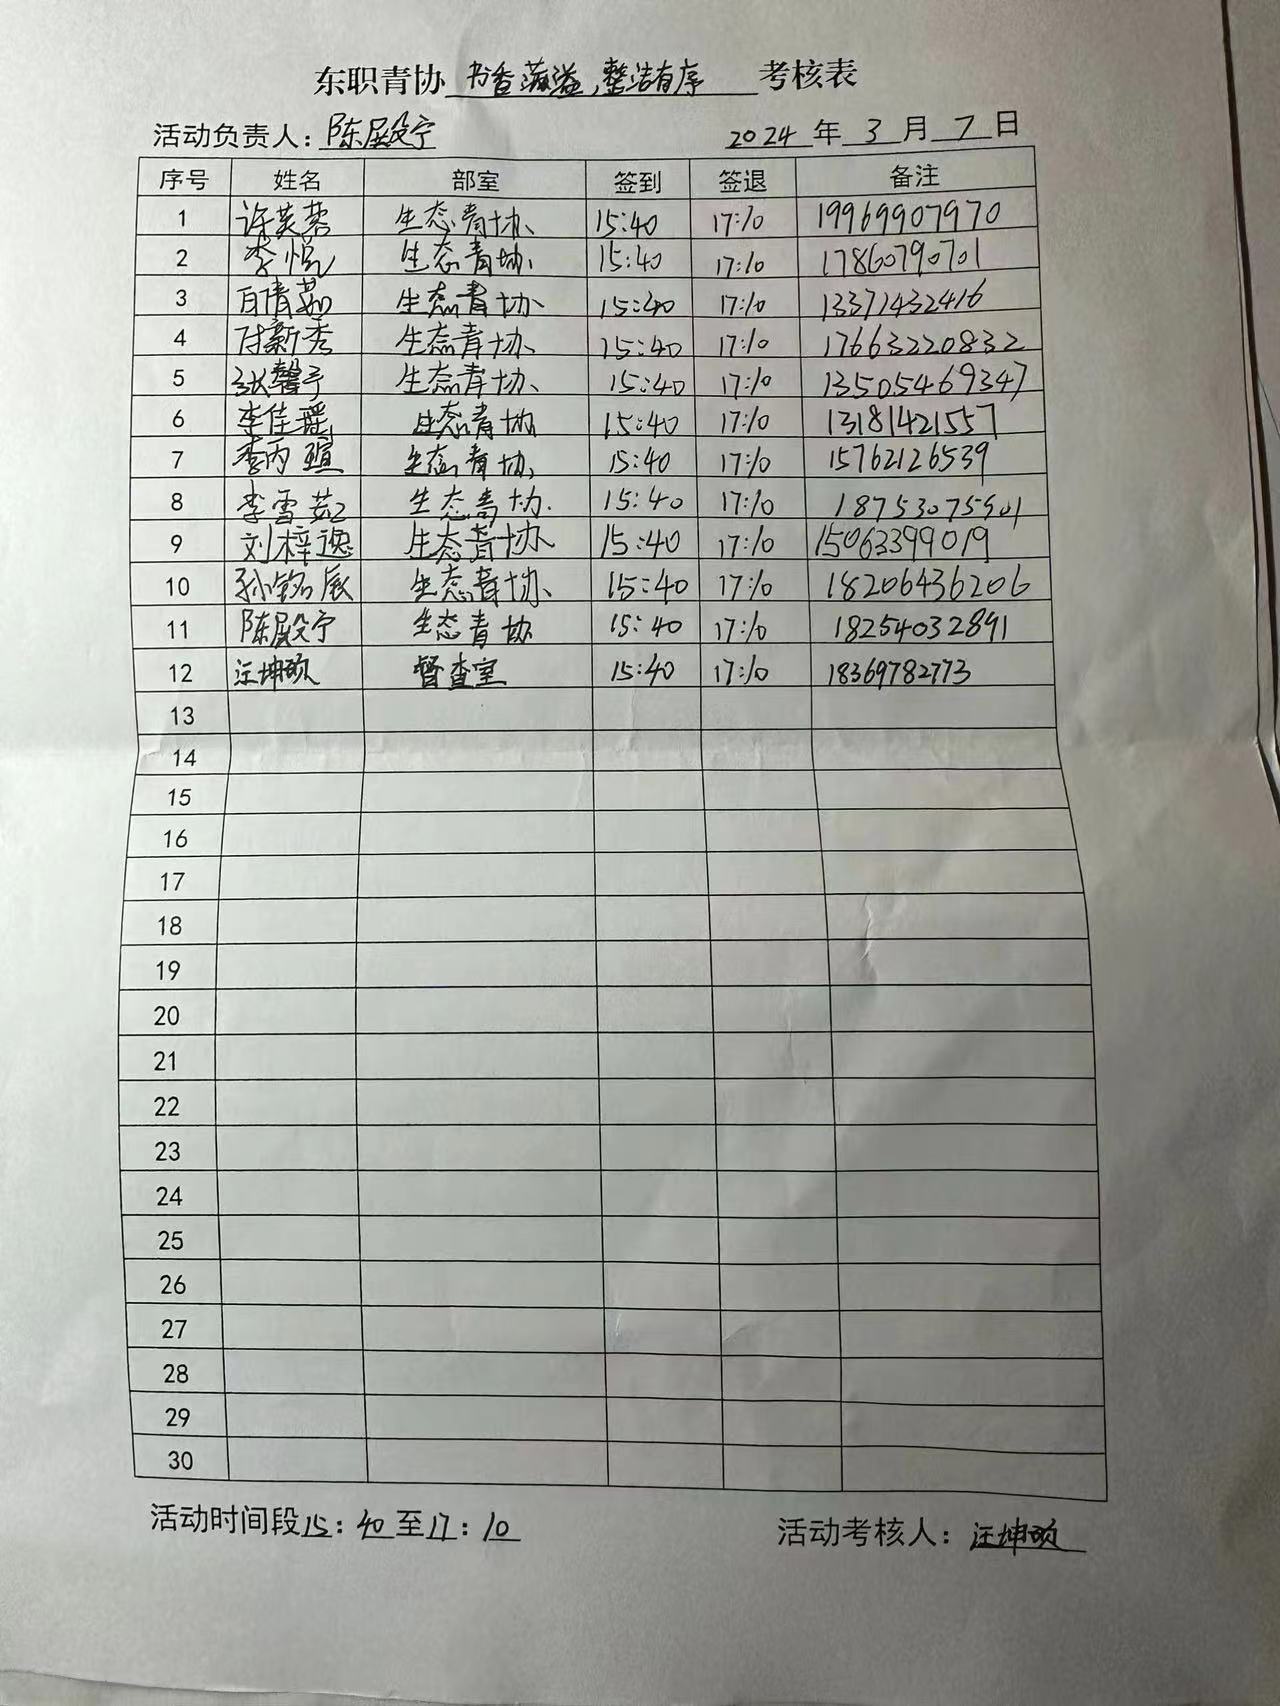 东职青协 书香满溢，整洁有序 考核表
活动负责人：陈殿宁 2024 年 3 月 7 日
序号 姓名 部室 签到 签退 备注
1 许芙蓉 生态青协 15:40 17:10 19969907970
2 李悦 生态青协 15:40 17:10 17860790701
3 白倩茹 生态青协 15:40 17:10 13371432416
4 付新秀 生态青协 15:40 17:10 17663220832
5 张馨予 生态青协 15:40 17:10 13505469347
6 李佳瑶 生态青协 15:40 17:10 13181421557
7 李丙瑄 生态青协 15:40 17:10 15762126539
8 李雪茹 生态青协 15:40 17:10 18753075501
9 刘梓逸 生态青协 15:40 17:10 15063399019
10 孙铭辰 生态青协 15:40 17:10 18206436206
11 陈殿宁 生态青协 15:40 17:10 18254032891
12 汪坤硕 督查室 15:40 17:10 18369782773
13
14
15
16
17
18
19
20
21
22
23
24
25
26
27
28
29
30
活动时间段 15：40 至 17：10 活动考核人：汪坤硕